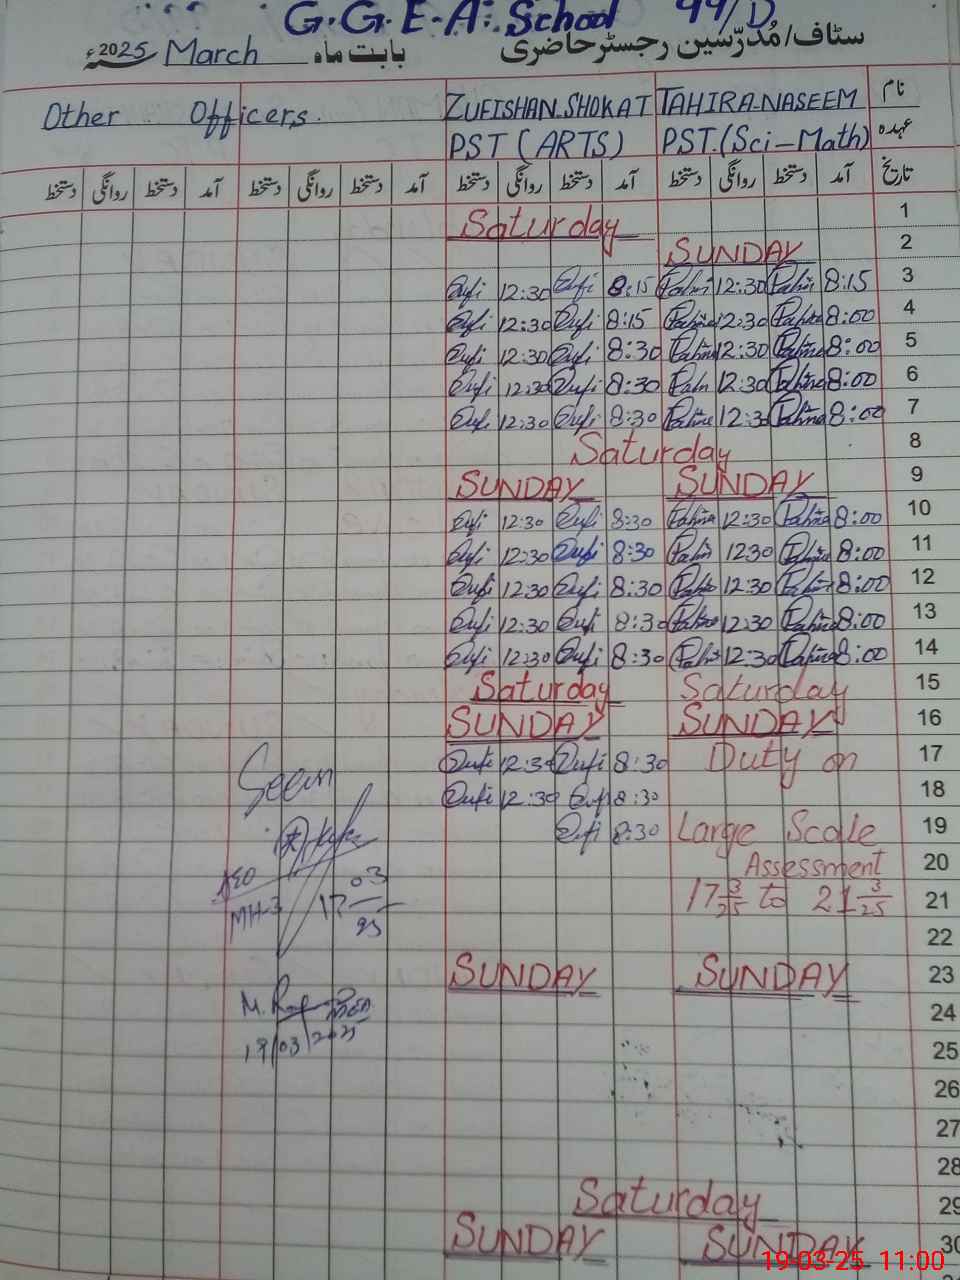 G.G.E.A. School 99/D
سٹاف/مُدرّسین رجسٹر حاضری بابت ماہ March 2025ء
نام TAHIRA NASEEM ZUFISHAN SHOKAT Other Officers.
عہدہ PST.(Sci-Math) PST (ARTS)
تاریخ آمد دستخط روانگی دستخط آمد دستخط روانگی دستخط آمد دستخط روانگی دستخط آمد دستخط روانگی دستخط
Saturday 1
SUNDAY 2
Zufi 12:30 Zufi 8:15 12:30 8:15 3
Zufi 12:30 Zufi 8:15 12:30 8:00 4
Zufi 12:30 Zufi 8:30 12:30 8:00 5
Zufi 12:30 Zufi 8:30 12:30 8:00 6
Zufi 12:30 Zufi 8:30 12:30 8:00 7
Saturday 8
SUNDAY SUNDAY 9
Zufi 12:30 Zufi 8:30 12:30 8:00 10
Zufi 12:30 Zufi 8:30 1230 8:00 11
Zufi 12:30 Zufi 8:30 12:30 8:00 12
Zufi 12:30 Zufi 8:30 12:30 8:00 13
Zufi 12:30 Zufi 8:30 12:30 8:00 14
Saturday Saturday 15
SUNDAY SUNDAY 16
Zufi 12:30 Zufi 8:30 Duty on 17
Zufi 12:30 Zufi 8:30 18
Zufi 8:30 Large Scale 19
Assessment 20
17 3/25 to 21 3/25 21
22
SUNDAY SUNDAY 23
24
25
26
27
28
Saturday 29
SUNDAY SUNDAY 30
Seen
AEO
MH-3
17 03
25
19/03/2025
19-03-25 11:00